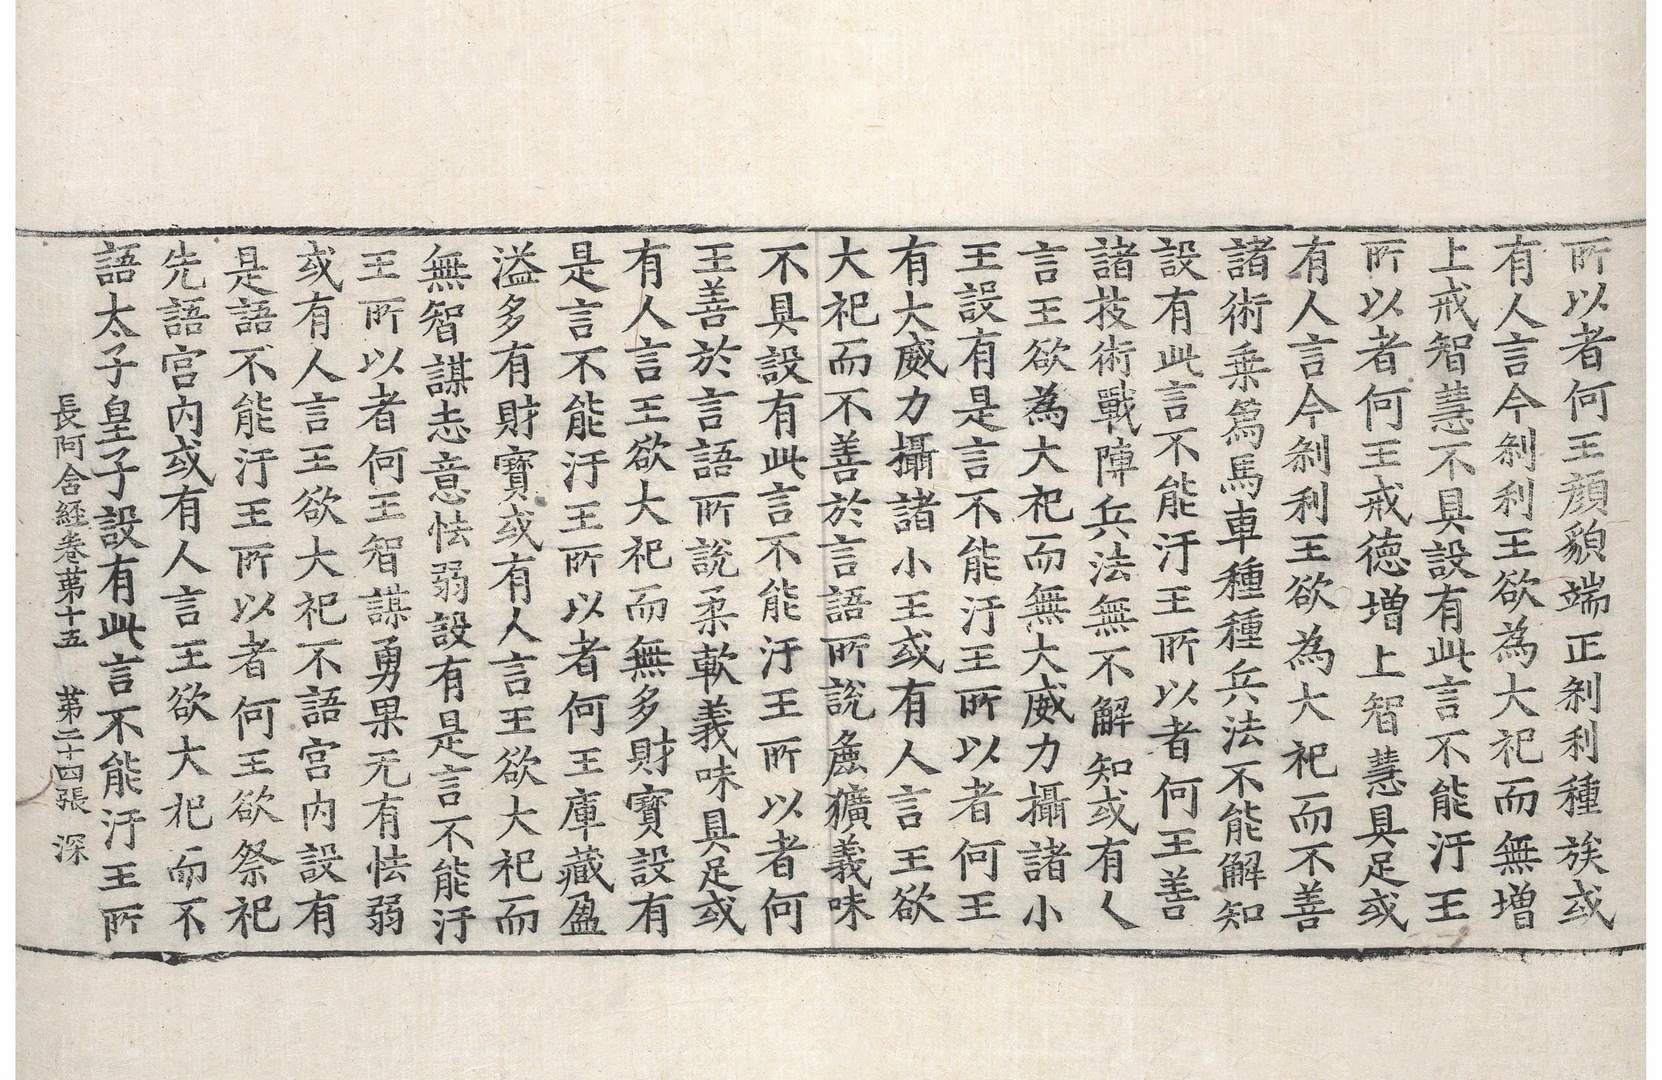 所以者何王顏貌端正刹利種族或
有人言今刹利王欲為大祀而無增
上戒智慧不具設有此言不能汙王
所以者何王戒德增上智慧具足或
有人言今刹利王欲為大祀而不善
諸術乗象馬車種種兵法不能解知
設有此言不能汙王所以者何王善
諸技術戰陣兵法無不解知或有人
言王欲為大祀而無大威力攝諸小
王設有是言不能汙王所以者何王
有大威力攝諸小王或有人言王欲
大祀而不善於言語所說麁獷義味
不具設有此言不能汙王所以者何
王善於言語所說柔軟義味具足或
有人言王欲大祀而無多財寶設有
是言不能汙王所以者何王庫藏盈
溢多有財寶或有人言王欲大祀而
無智謀志意怯弱設有是言不能汙
王所以者何王智謀勇果无有怯弱
或有人言王欲大祀不語宮內設有
是語不能汙王所以者何王欲祭祀
先語宮内或有人言王欲大祀而不
語太子皇子設有此言不能汙王所
長阿含経卷苐十五 苐二十四張 深